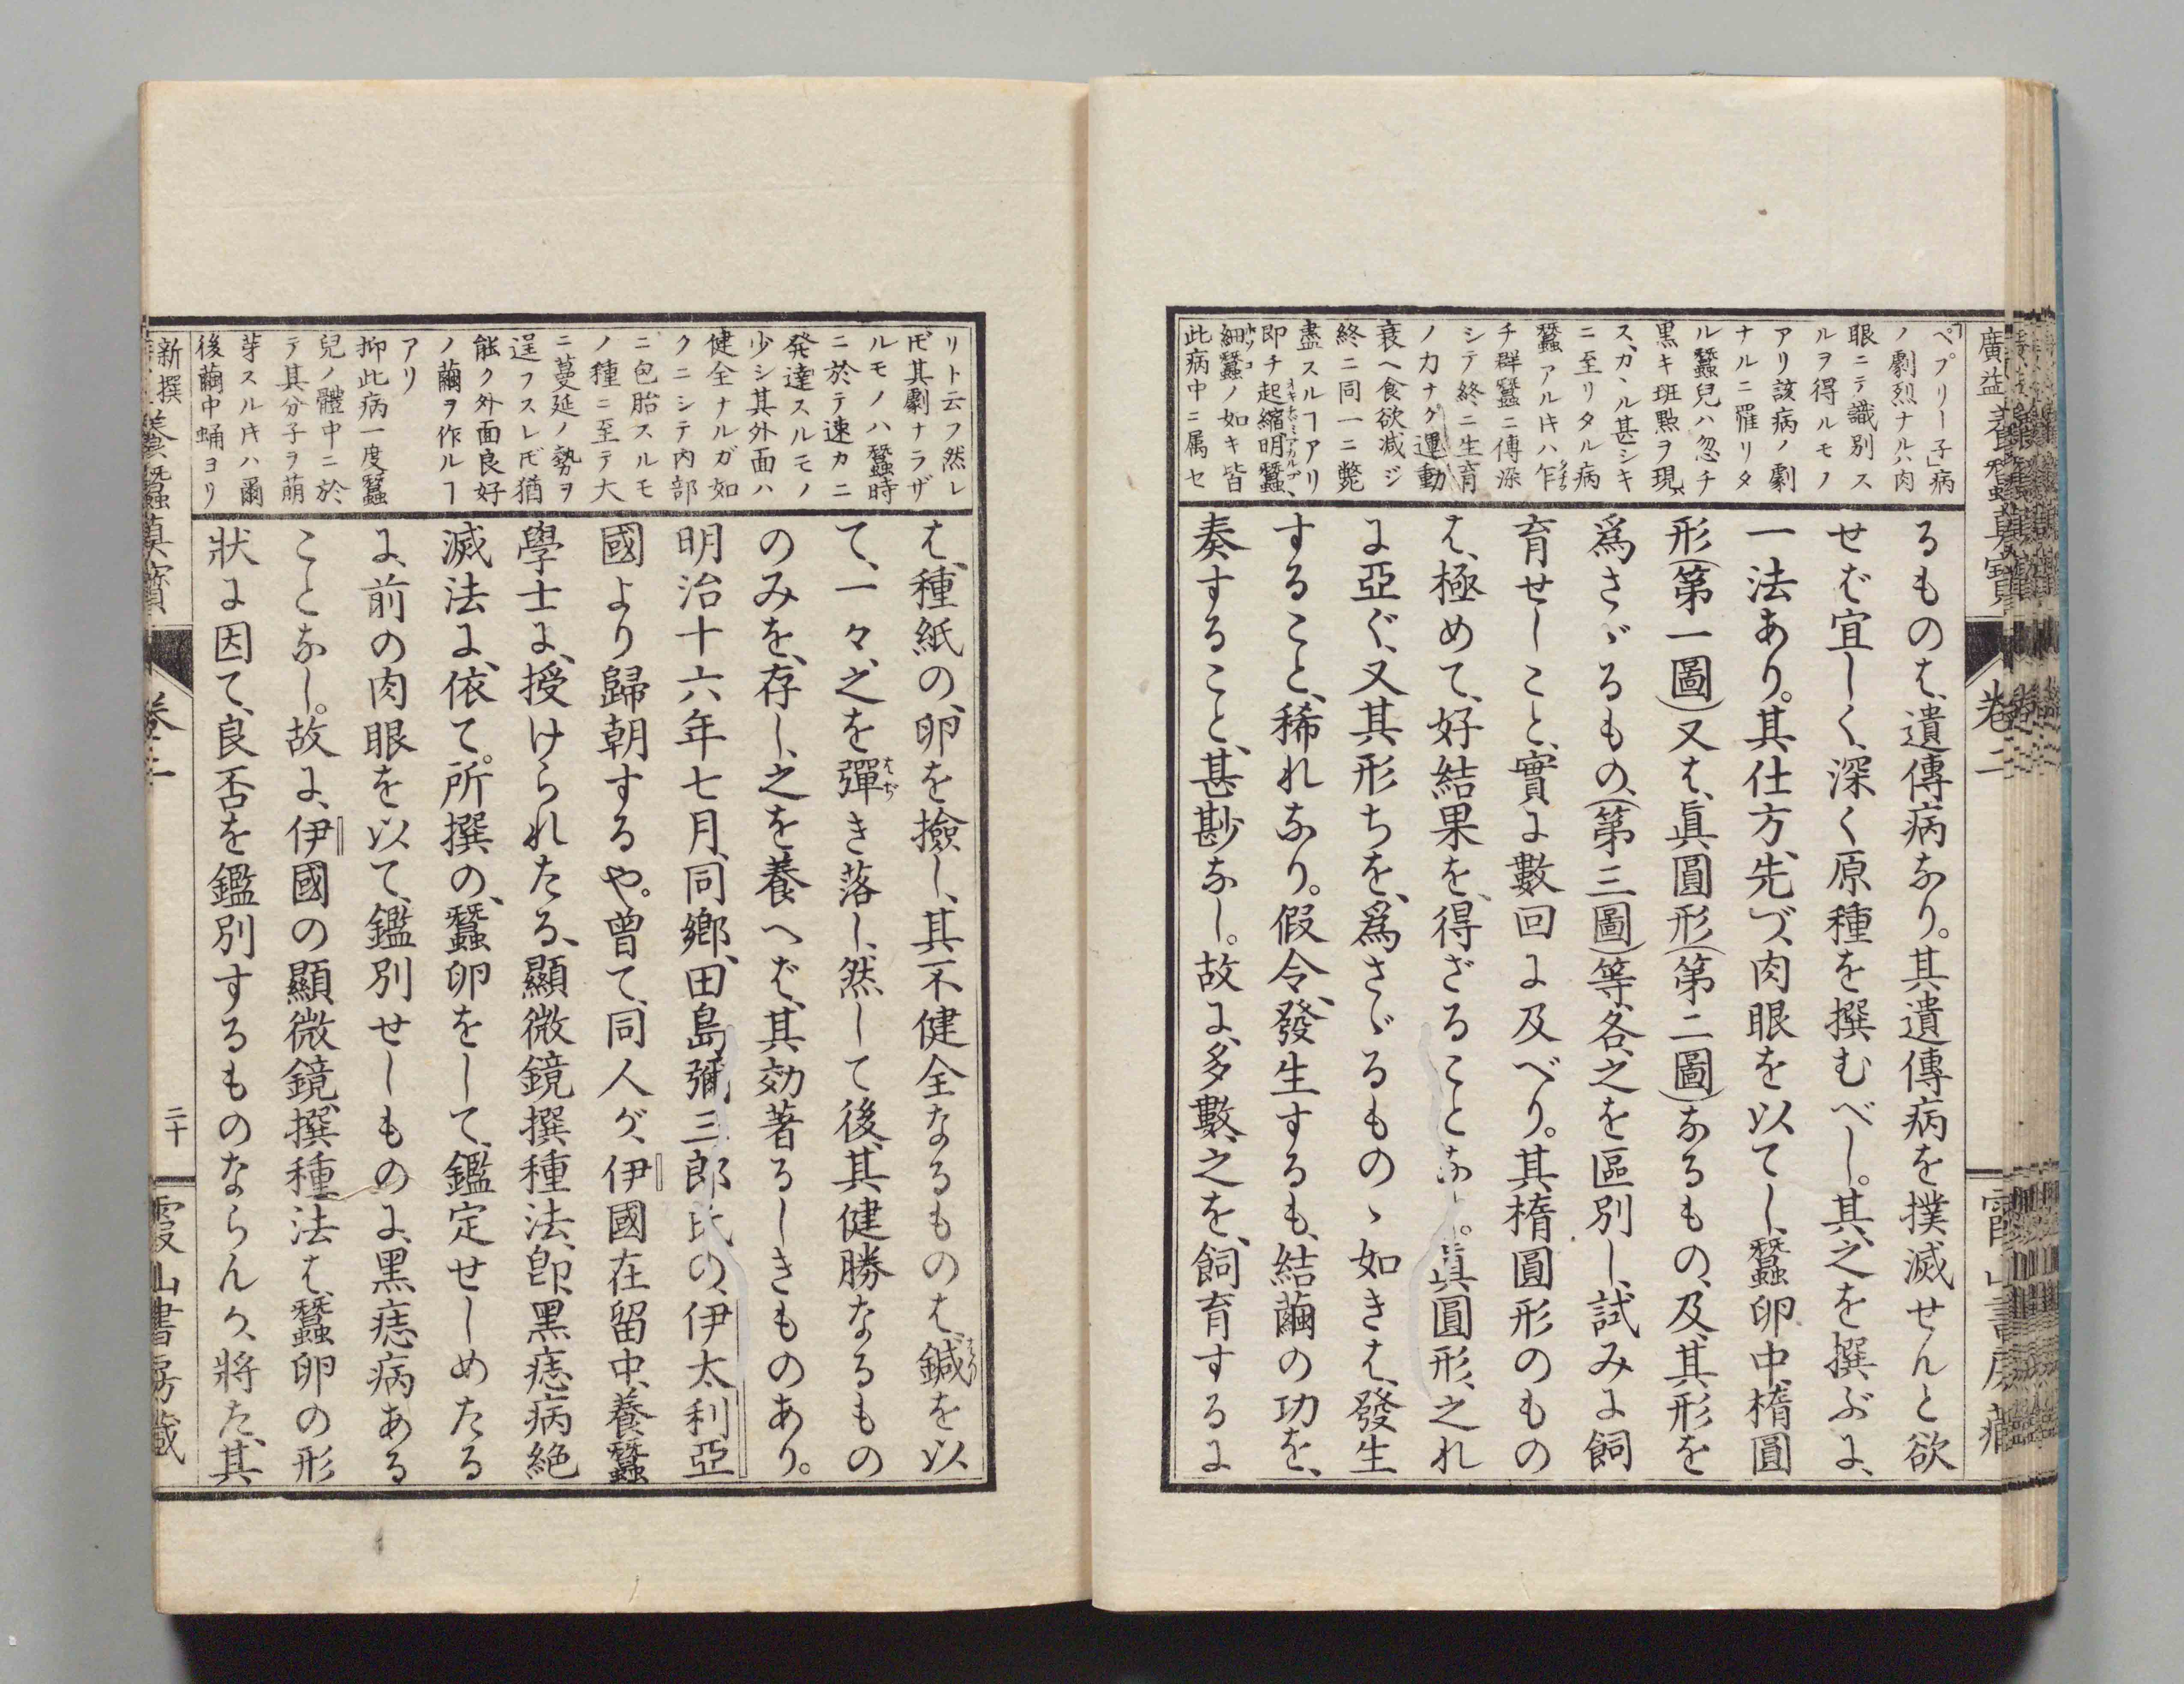 廣益養蠶真寶 卷二 霞山書房藏
「ペプリー子」病
ノ劇烈ナルハ肉
眼ニテ識別ス
ルヲ得ルモノ
アリ該病ノ劇
ナルニ罹リタ
ル蠶兒ハ忽チ
黒キ斑㸃ヲ現
ス、ガヽル甚シキ
ニ至リタル病
蠶アルトキハ乍
チ群蠶ニ傳染
シテ終ニ生育
ノ力ナク運動
衰ヘ食欲減ジ
終ニ同一ニ斃
盡スルヿアリ
即チ起縮明蠶、
細蠶ノ如キ皆
此病中ニ属セ
るものハ、遺傳病なり。其遺傳病を撲滅せんと欲
せば宜しく、深く原種を撰むべし。其之を撰ぶに、
一法あり。其仕方、先づ、肉眼を以てし、蠶卵中、楕圓
形(第一圖)又は、眞圓形(第二圖)なるもの、及、其形を
爲さゞるもの、(第三圖)等、各之を區別し、試みに飼
育せしこと、實に數回に及べり。其楕圓形のもの
は、極めて、好結果を、得ざることなし。眞圓形、之れ
に亞ぐ、又其形ちを、爲さゞるものゝ如きは、發生
すること、稀れなり。假令、發生するも、結繭の功を、
奏すること、甚尠なし。故に、多數、之を、飼育するに
リト云フ然レ
𪜈其劇ナラザ
ルモノハ蠶時
ニ於テ速カニ
発達スルモノ
少シ其外面ハ
健全ナルガ如
クニシテ内部
ニ包胎スルモ
ノ種ニ至テ大
ニ蔓延ノ勢ヲ
逞フスレ𪜈猶
能ク外面良好
ノ繭ヲ作ルヿ
アリ
抑此病一度蠶
兒ノ體中ニ於
テ其分子ヲ萠
芽スルトキハ爾
後繭中蛹ヨリ
は、種紙の、卵を撿し、其不健全なるものは、鍼を以
て、一々、之を彈き落し、然して後、其健勝なるもの
のみを、存し、之を養へば、其効著るしきものあり。
明治十六年七月、同郷、田島彌三郎氏の、伊太利亞
國より歸朝するや。曾て、同人が、伊國在留中、養蠶
學士に、授けられたる、顯微鏡撰種法、即、黒痣病絶
滅法に、依て。所撰の、蠶卵をして、鑑定せしめたる
に、前の肉眼を以て、鑑別せしものに、黒痣病ある
ことなし。故に、伊國の顯微鏡、撰種法は、蠶卵の形
狀に因て、良否を鑑別するものならんか、將た、其
新撰養蠶真寶 卷二 二十 霞山書房藏